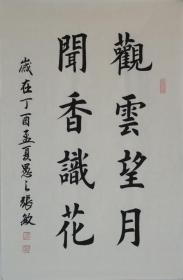 觀雲望月
聞香識花
歲在丁酉孟夏愚之張敏